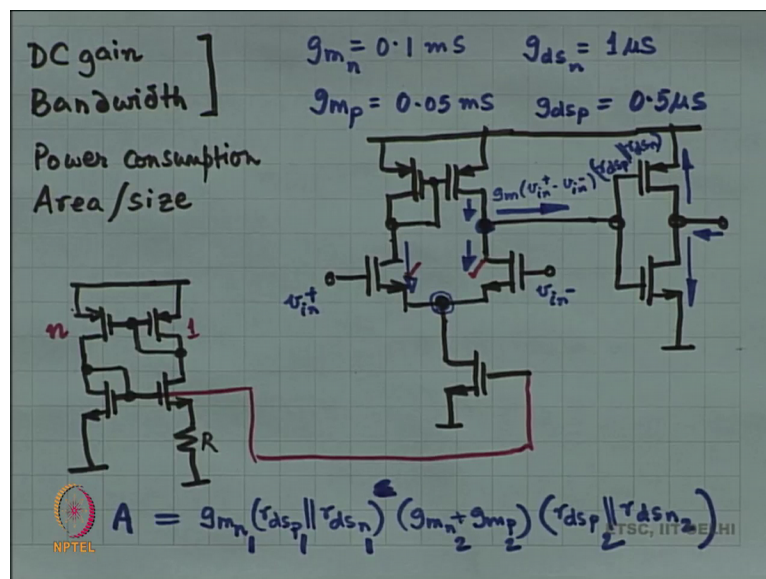 DC gain
Bandwidth
Power consumption
Area/size
g_mn = 0.1 mS g_dsn = 1 μS
g_mp = 0.05 mS g_dsp = 0.5 μS
g_m(v_in^+ - v_in^-)(r_dsp||r_dsn)
v_in^+
v_in^-
n
1
R
A = g_mn1 (r_dsp1 || r_dsn1) (g_mn2 + g_mp2) (r_dsp2 || r_dsn2)
ETSC, IIT DELHI
NPTEL